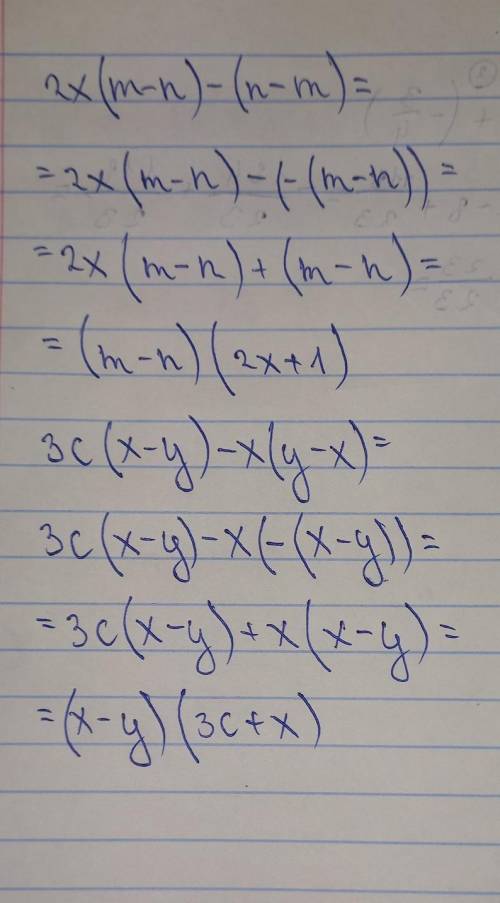 2x(m-n)-(n-m)=
=2x(m-n)-(-(m-n))=
=2x(m-n)+(m-n)=
=(m-n)(2x+1)
3c(x-y)-x(y-x)=
3c(x-y)-x(-(x-y))=
=3c(x-y)+x(x-y)=
=(x-y)(3c+x)